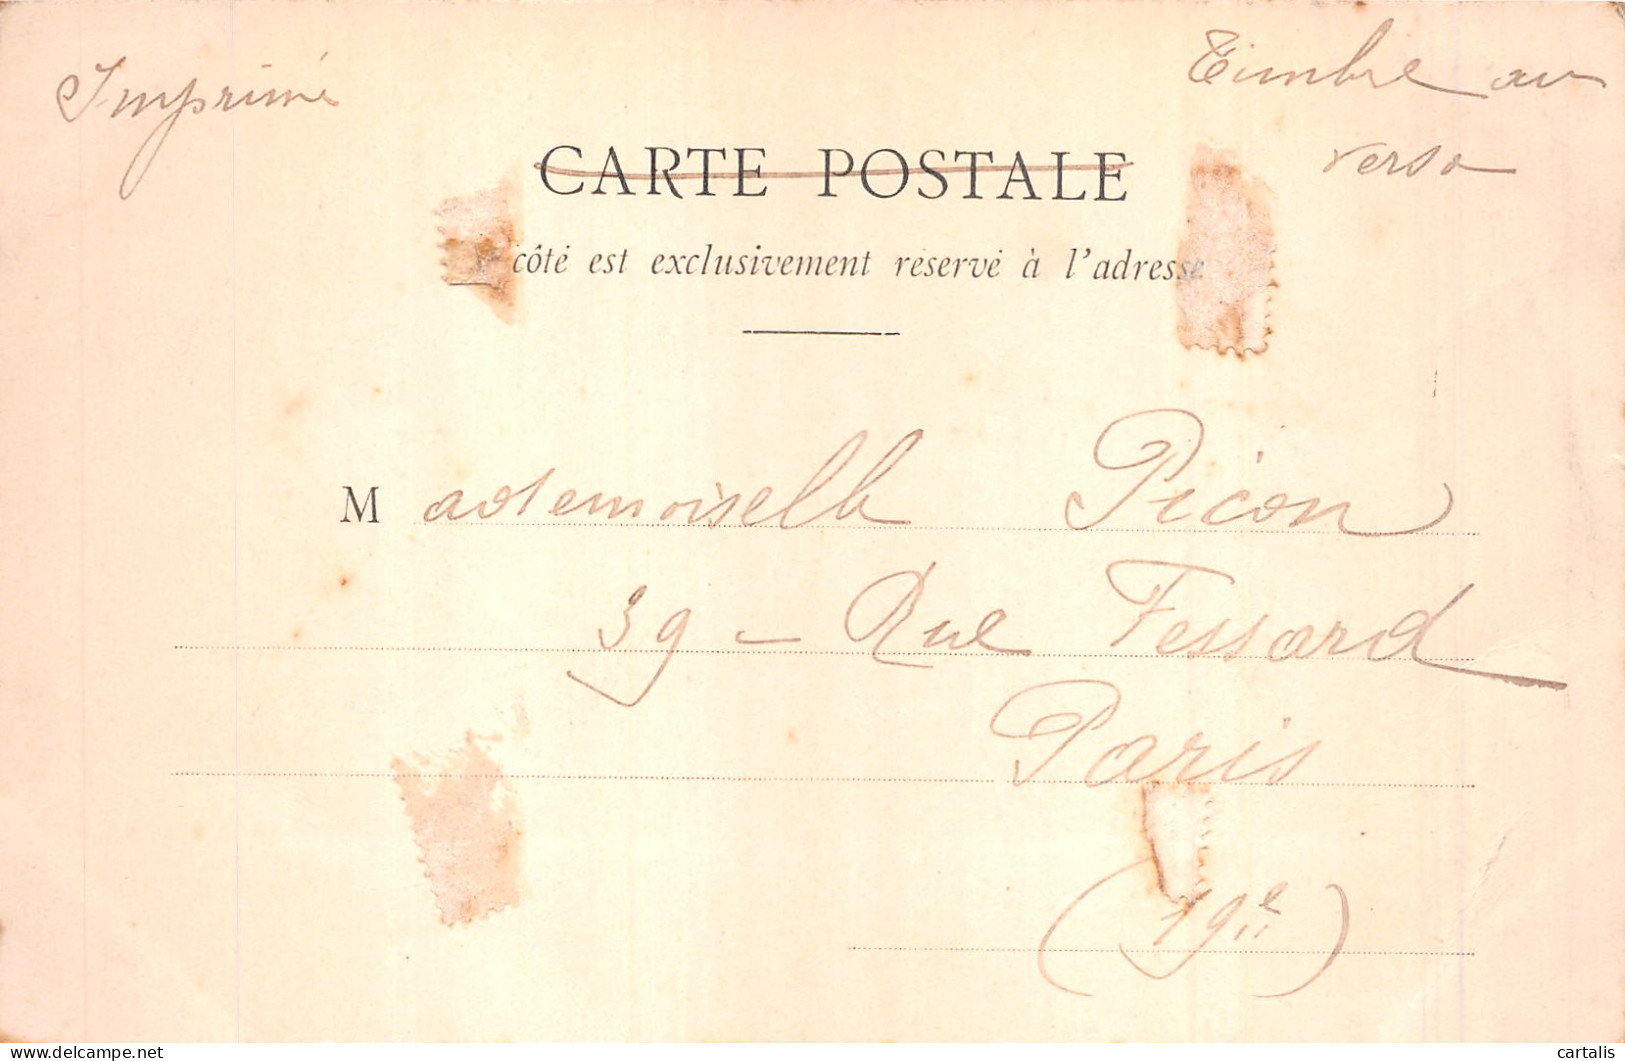 Imprimé
Timbre au
verso
CARTE POSTALE
côté est exclusivement réservé à l'adresse
Mademoiselle Picon
39 - Rue Fessard
Paris
(19e)
delcampe.net
cartalis